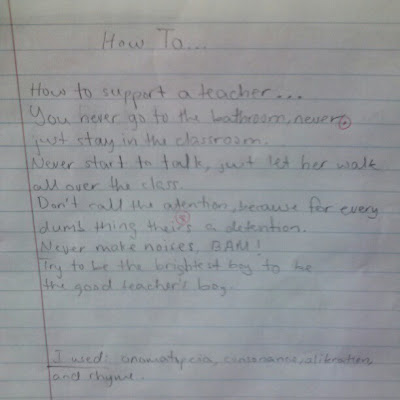 How To...
How to support a teacher...
You never go to the bathroom, never
just stay in the classroom.
Never start to talk, just let her walk
all over the class.
Don't call the atention, because for every
dumb thing their's a detention.
Never make noices, BAM!
Try to be the brightest boy to be
the good teacher's boy.
I used: onomatypeia, consonance, aliteration
and rhyme.